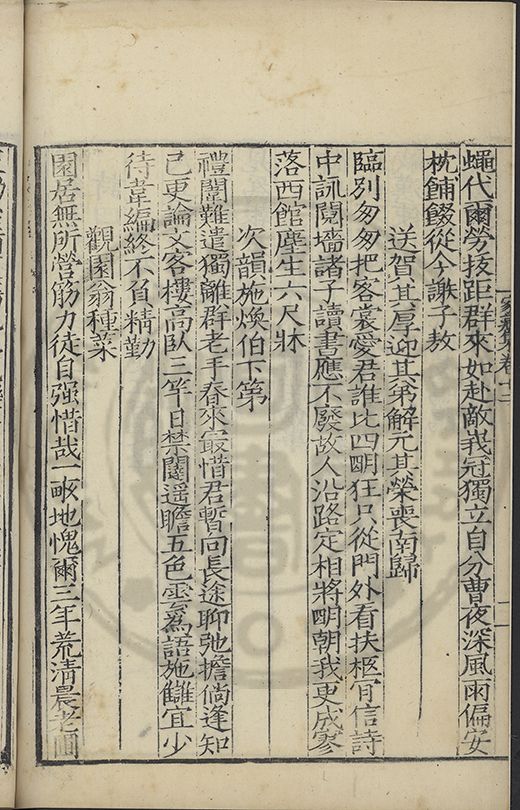 蠅代爾勞拔距群來如赴敵峩冠獨立自分曹夜深風雨偏安
枕餔餟從今謝子敖
送賀其厚迎其弟解元其榮喪南歸
臨別匆匆把客裳愛君誰比四明狂只從門外看扶柩肎信詩
中訊鬩墻諸子讀書應不廢故人沿路定相將明朝我更成寥
落西館塵生六尺牀
次韻施煥伯下第
禮闈難遣獨離群老手春來冣惜君暫向長途聊弛擔倘逢知
已更論文客樓高臥三竿日禁闥遥瞻五色雲爲語施讎宜少
待韋編終不負精勤
觀園翁種菜
園居無所營筋力徒自强惜哉一畞地愧爾三年荒清晨老圃
家藏集卷十二